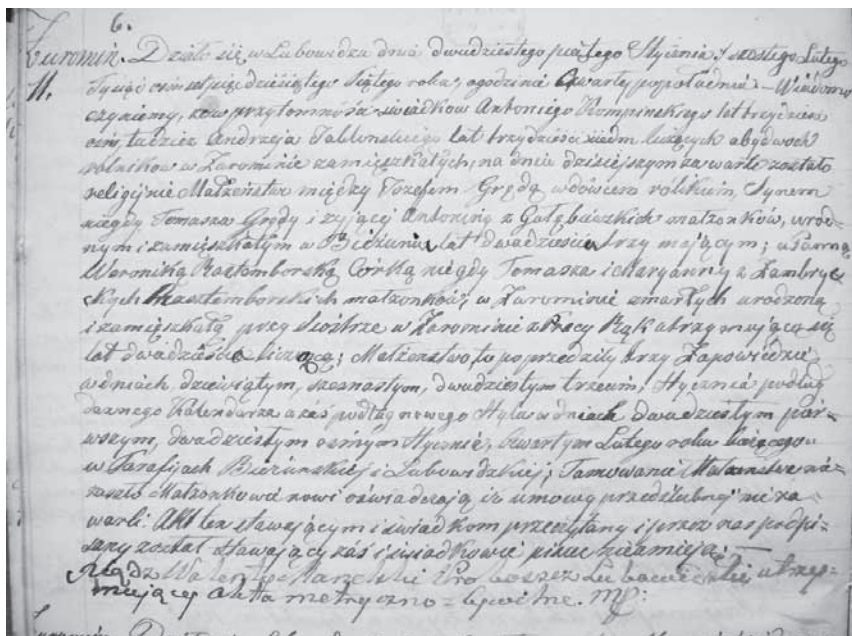 6.
Żuromin. Działo się w Lubowidzu dnia dwudziestego piątego Stycznia / szostego Lutego
11. Tysiąc ośmset pięćdziesiątego roku, o godzinie Czwartej popołudniu – Wiadomo
czyniemy, że w przytomności świadków Antoniego Kompinskiego lat trzydzieści
ośm, tudzież Andrzeja Jabłonskiego lat trzydzieści siedm liczących obydwoch
rolników w Żurominie zamieszkałych, na dniu dzisiejszym zawarte zostało
religijnie Małżeństwo między Jozefem Grędą wdowcem rolnikiem, Synem
niegdy Tomasza Grędy i żyjącej Antoniny z małżonków, urod=
nym i zamieszkałym w Bieżuniu lat dwadzieścia trzy mającym; a Panną
Weroniką Rasztemborską Córką niegdy Tomasza i Maryanny z Zambrzyc
kich Rasztemborskich małżonków, w Żurominie zmarłych urodzoną
i zamieszkałą przy Siostrze w Żurominie z Pracy Rąk utrzymującą się
lat dwadzieścia liczącą; Małżeństwo to poprzedziły trzy Zapowiedzie
w dniach dziewiątym, szesnastym, dwudziestym trzecim, Stycznia podług
dawnego Kalendarza a zaś podług nowego Stylu w dniach dwudziestym pier=
wszym, dwudziestym osmym Stycznia, Czwartym Lutego roku bieżącego
w Parafijach Bieżunskiej i Lubowidzkiej; Tamowanie Małżeństwa nie
zaszło Małżonkowie nowi oświadczają iż umowy przedślubnej nie za=
warli. Akt ten stawającym i świadkom przeczytany i przez nas podpi=
sany został stawający zaś i świadkowie pisać nieumieją.
Xiądz Walenty Proboszcz Lubowidzki utrzy=
mujący Akta metryczno = Cywilne. mp: